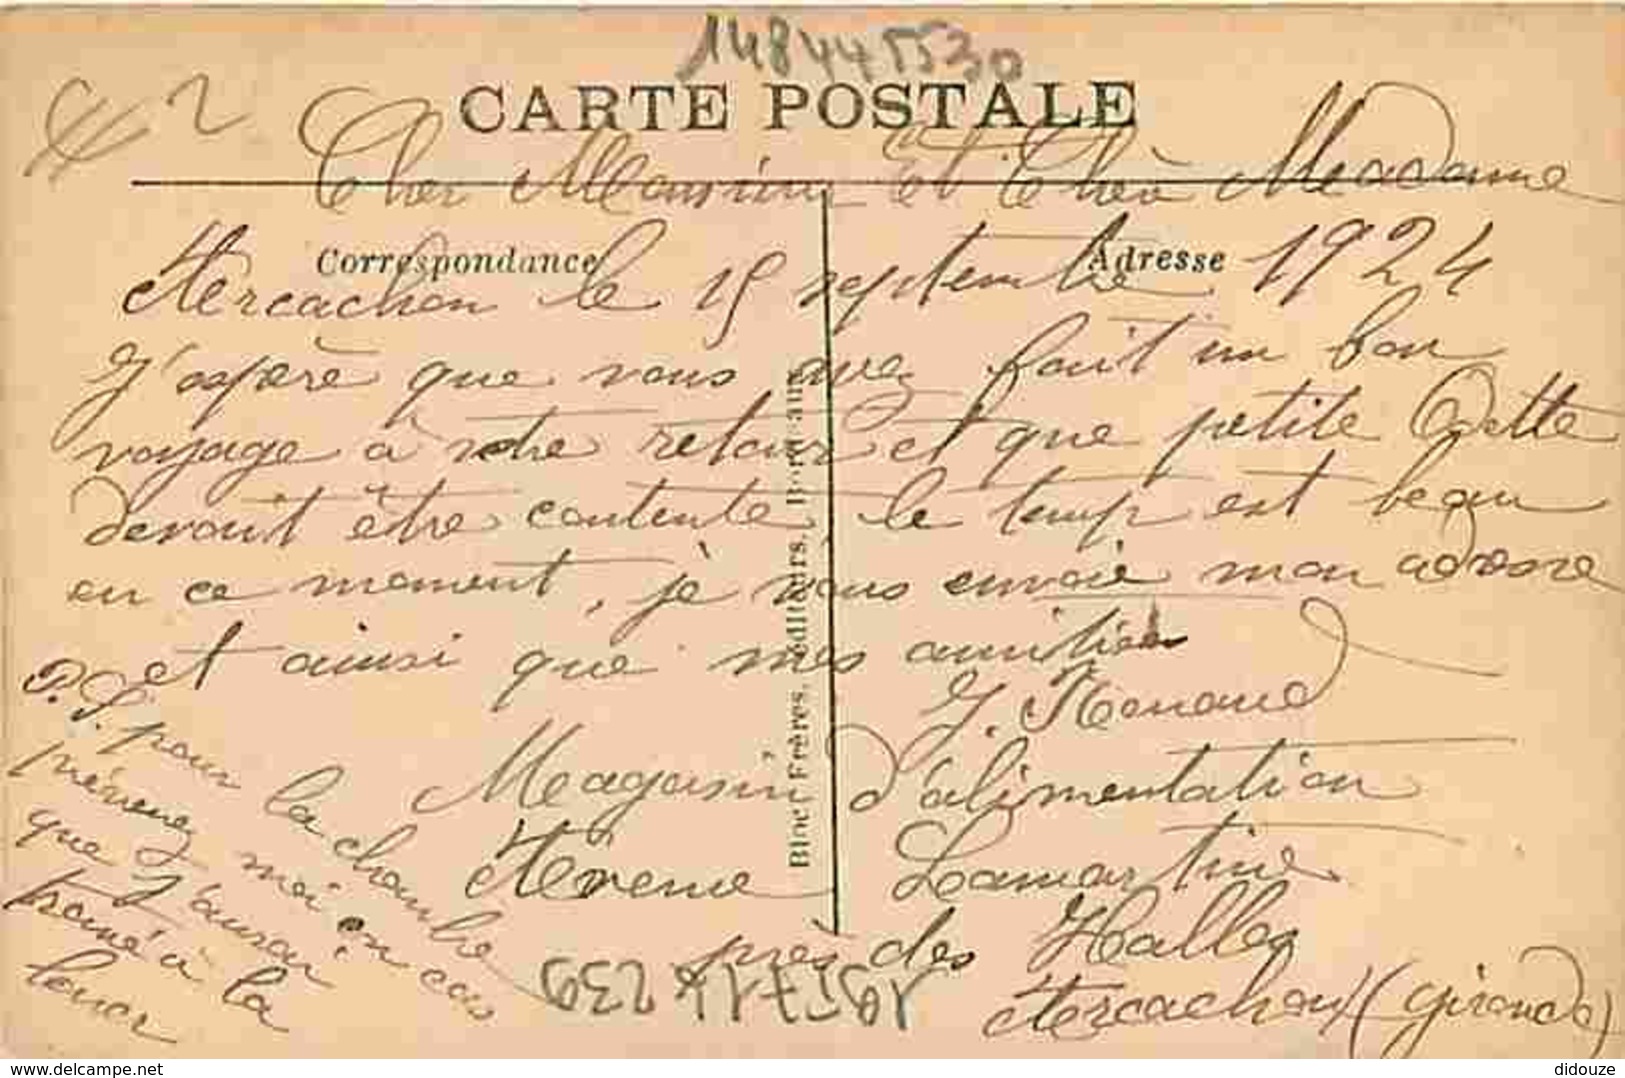 148445530
2
CARTE POSTALE
Cher Monsieur Et Chère Madame
Correspondance
Adresse
Arcachon le 15 septembre 1924
J'espère que vous avez fait un bon
voyage à votre retour et que petite Odette
devait être contente le temp est beau
en ce moment, je vous envoie mon adresse
et ainsi que mes amitiés
J. Renaud
Magasin d'alimentation
Avenue Lamartine
près des Halles
Arcachon (Gironde)
P.S. pour la chambre
prévenez moi en cas
que j'aurai
trouvé à la
louer
Bloc Frères, éditeurs, Bordeaux
delcampe.net
didouze